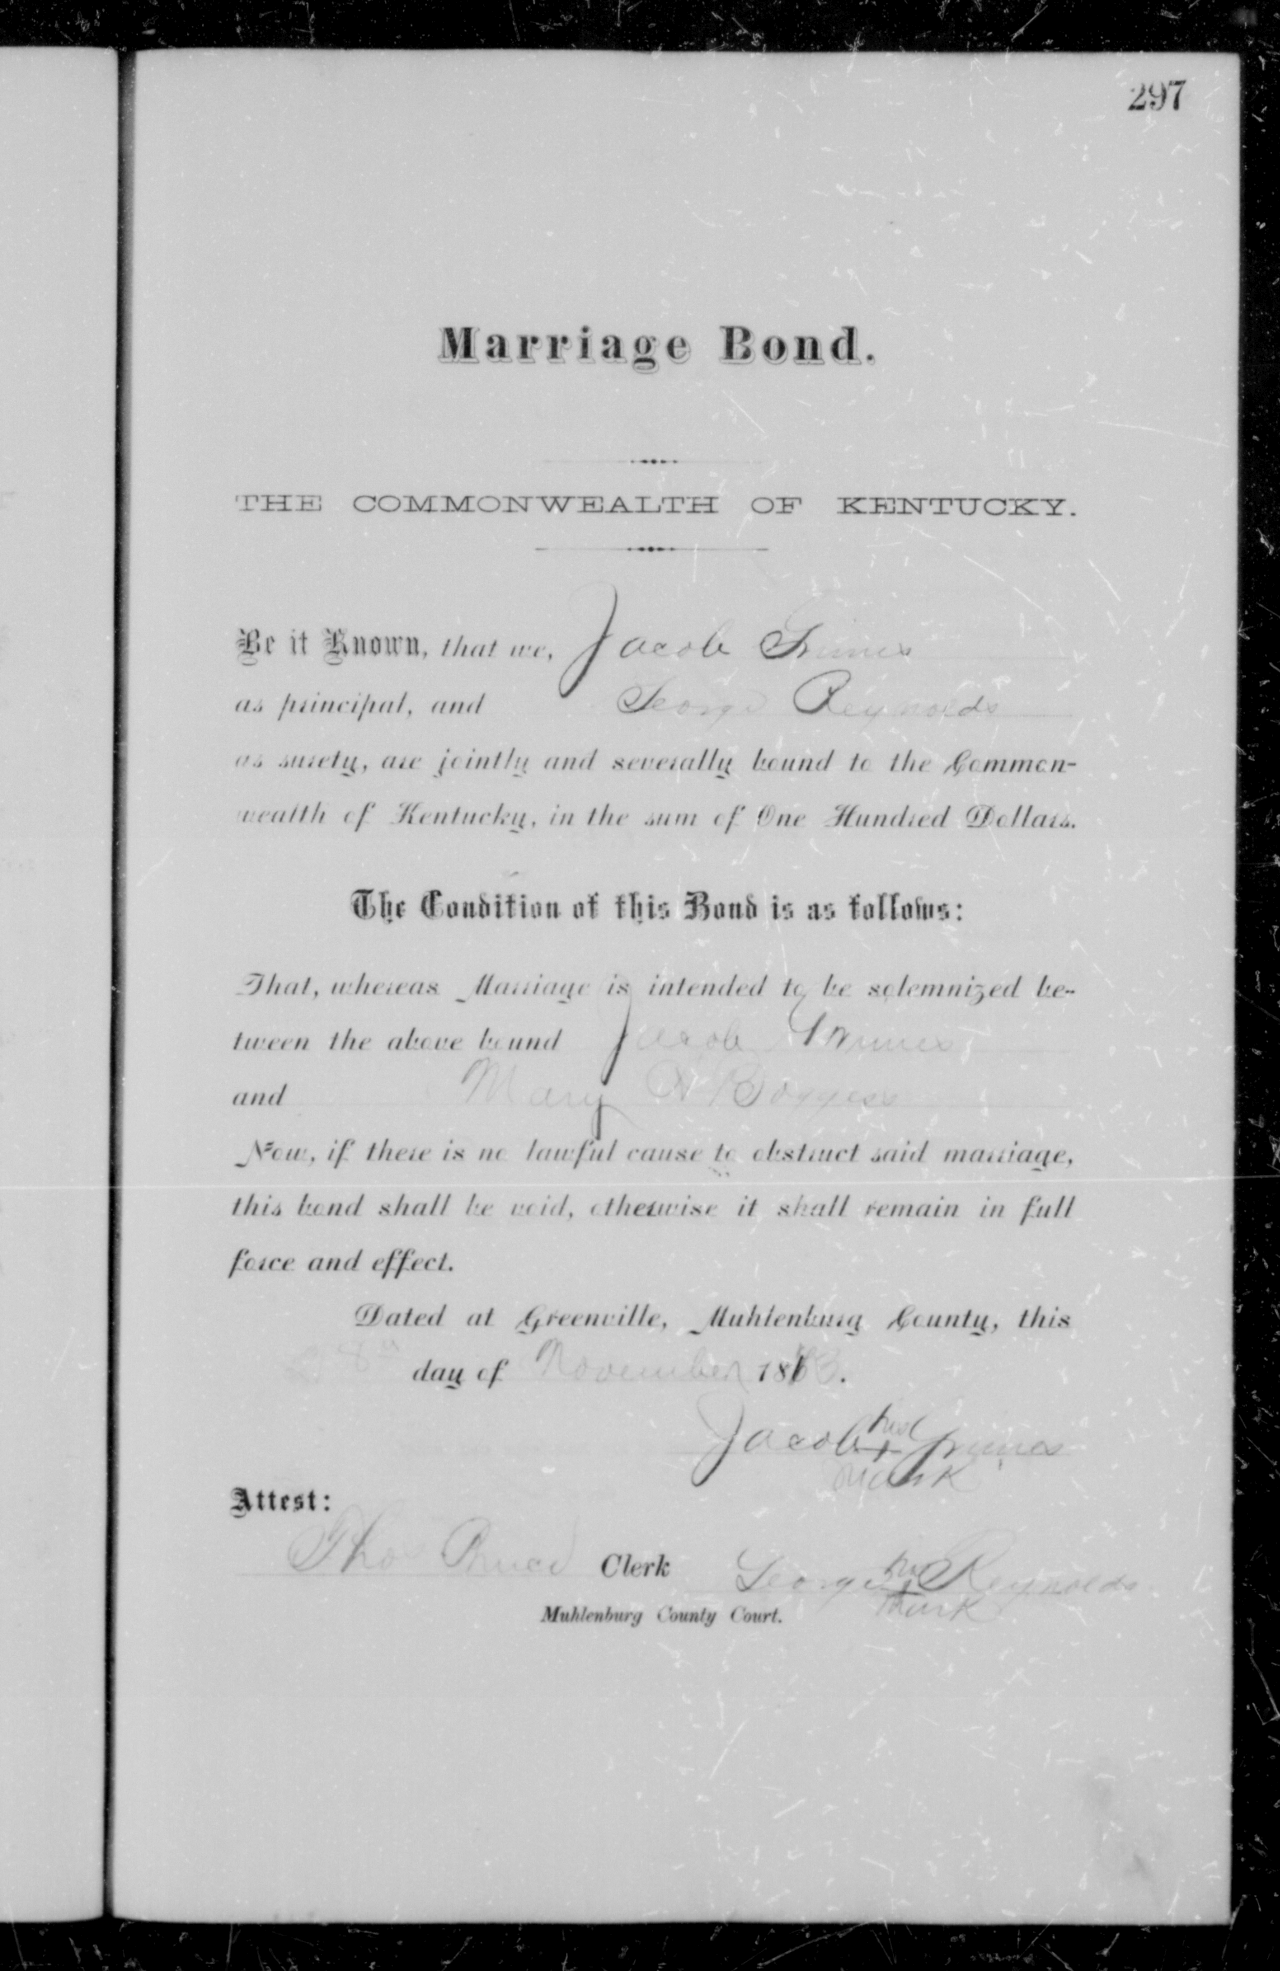 297
Marriage Bond.
THE COMMONWEALTH OF KENTUCKY.
Be it Known, that we, Jacob Grimes
as principal, and George Reynolds
as surety, are jointly and severally bound to the Common-
wealth of Kentucky, in the sum of One Hundred Dollars.
The Condition of this Bond is as follows:
That, whereas Marriage is intended to be solemnized be-
tween the above bound Jacob Grimes
and Mary A Boggess
Now, if there is no lawful cause to obstruct said marriage,
this bond shall be void, otherwise it shall remain in full
force and effect.
Dated at Greenville, Muhlenburg County, this
28th day of November 18 3.
his
Jacob + Grimes
mark
Attest:
Tho Bruce Clerk
his
George + Reynolds
mark
Muhlenburg County Court.